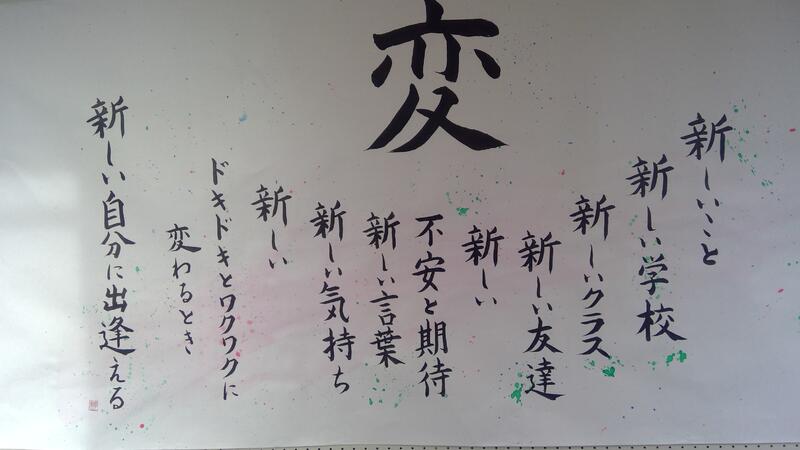 変
新しいこと
新しい学校
新しいクラス
新しい友達
新しい
不安と期待
新しい言葉
新しい気持ち
新しい
ドキドキとワクワクに
変わるとき
新しい自分に出逢える